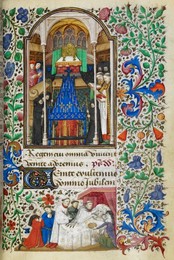 Regem cui omnia viuunt
venite adoremus. ps
Uenite exultemus
domino iubilem